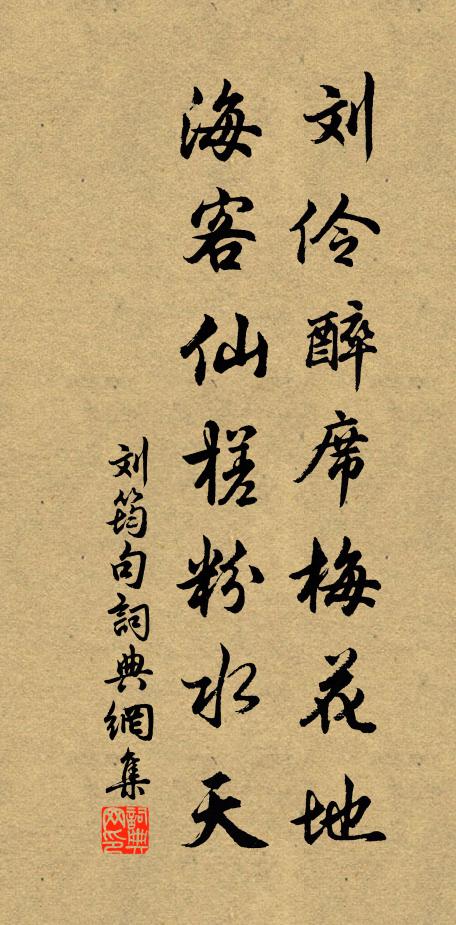 刘伶醉席梅花地
海客仙槎粉水天
刘筠句詞典網集
詞典網印